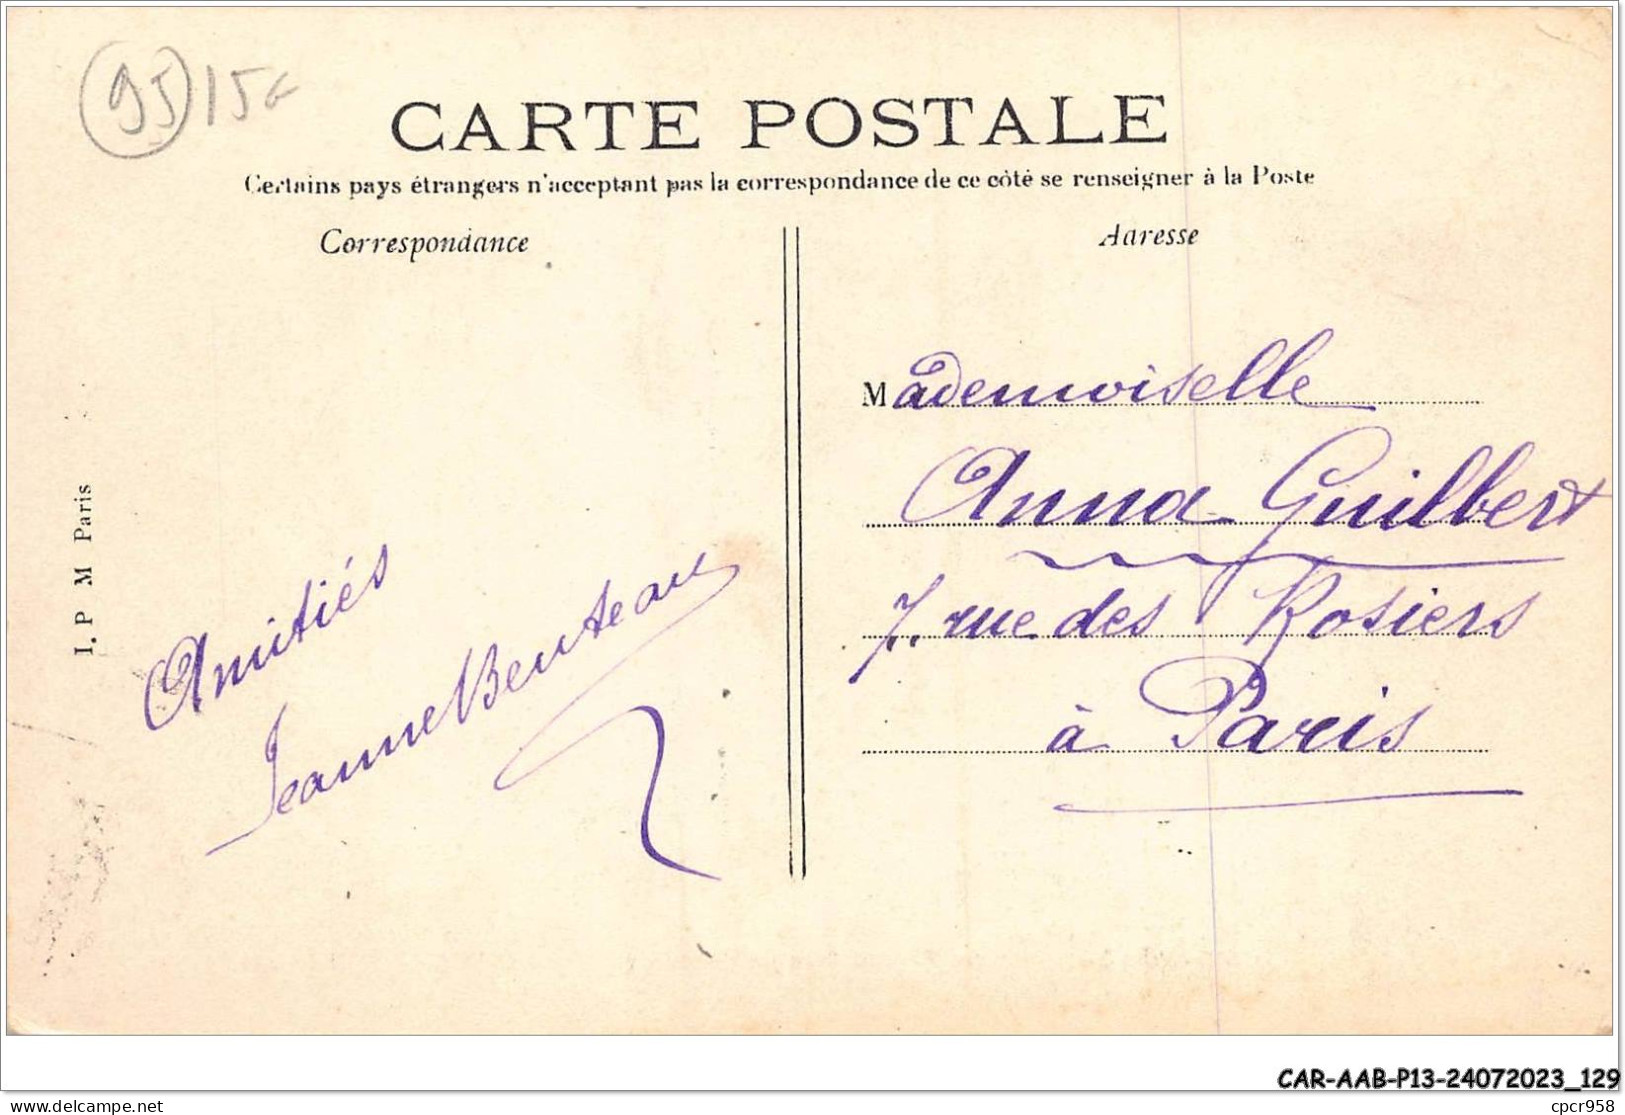 95 15€
CARTE POSTALE
Certains pays étrangers n'acceptant pas la correspondance de ce côté se renseigner à la Poste
Correspondance
Adresse
I. P M Paris
Amitiés
Jeanne Benteau
Mademoiselle
Anna Guilbert
7. rue des Rosiers
à Paris
CAR-AAB-P13-24072023_129
delcampe.net
cpcr958